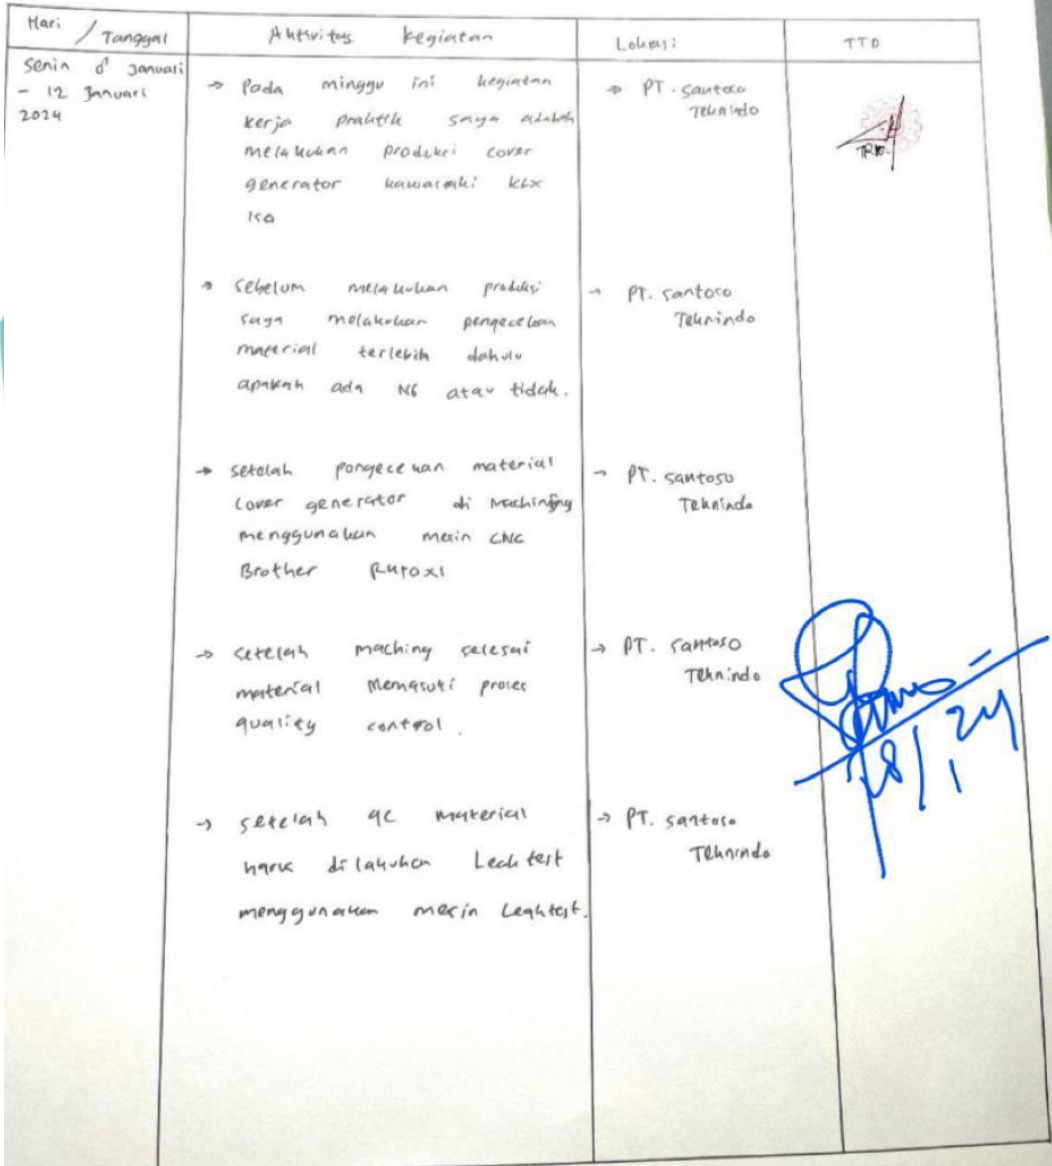 Hari / Tanggal
Aktivitas kegiatan
Lokasi
TTD
Senin 8 Januari
- 12 Januari
2024
→ Pada minggu ini kegiatan
kerja praktik saya adalah
melakukan produksi cover
generator kawasaki KLX
150
→ PT. Santoso
Teknindo
TRIO
→ sebelum melakukan produksi
saya melakukan pengecekan
material terlebih dahulu
apakah ada NG atau tidak.
→ PT. Santoso
Teknindo
→ setelah pengecekan material
cover generator di Machining
menggunakan mesin CNC
Brother
→ PT. Santoso
Teknindo
→ setelah maching selesai
material memasuki proses
quality control.
→ PT. Santoso
Teknindo
18/1 24
→ setelah qc material
harus dilakukan Leak test
menggunakan mesin Leaktest.
→ PT. Santoso
Teknindo